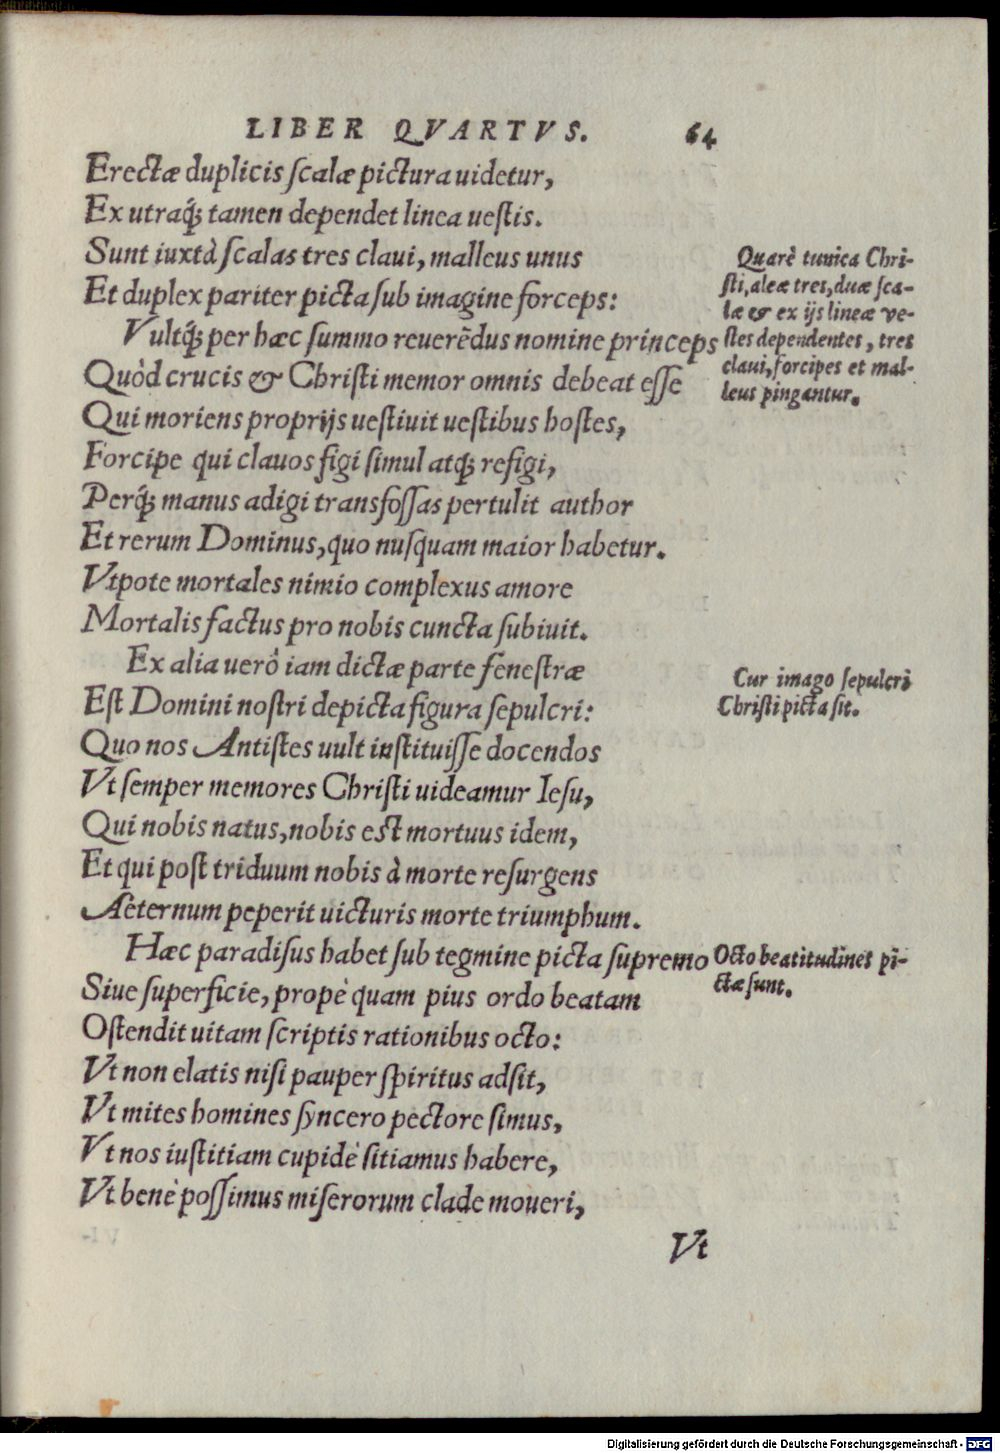 LIBER QVARTVS. 64
Erectæ duplicis ſcalæ pictura uidetur,
Ex utraq́; tamen dependet linea ueſtis.
Sunt iuxtà ſcalas tres claui, malleus unus
Et duplex pariter picta ſub imagine forceps:
Vultq́; per hæc ſummo reuerẽdus nomine princeps
Quòd crucis & Chriſti memor omnis debeat eſſe
Qui moriens proprijs ueſtiuit ueſtibus hoſtes,
Forcipe qui clauos figi ſimul atq; refigi,
Perq́; manus adigi transfoſſas pertulit author
Et rerum Dominus, quo nuſquam maior habetur.
Vtpote mortales nimio complexus amore
Mortalis factus pro nobis cuncta ſubiuit.
Ex alia uerò iam dictæ parte feneſtræ
Eſt Domini noſtri depicta figura ſepulcri:
Quo nos Antiſtes uult inſtituiſſe docendos
Vt ſemper memores Chriſti uideamur Ieſu,
Qui nobis natus, nobis eſt mortuus idem,
Et qui poſt triduum nobis à morte reſurgens
Aeternum peperit uicturis morte triumphum.
Hæc paradiſus habet ſub tegmine picta ſupremo
Siue ſuperficie, propè quam pius ordo beatam
Oſtendit uitam ſcriptis rationibus octo:
Vt non elatis niſi pauper ſpiritus adſit,
Vt mites homines ſyncero pectore ſimus,
Vt nos iuſtitiam cupidè ſitiamus habere,
Vt benè poſſimus miſerorum clade moueri,
Vt
Quarè tunica Chri-
ſti, aleæ tres, duæ ſca-
læ & ex ijs lineæ ve-
ſtes dependentes, tres
claui, forcipes et mal-
leus pingantur.
Cur imago ſepulcri
Chriſti picta ſit.
Octo beatitudines pi-
ctæ ſunt.
Digitalisierung gefördert durch die Deutsche Forschungsgemeinschaft - DFG